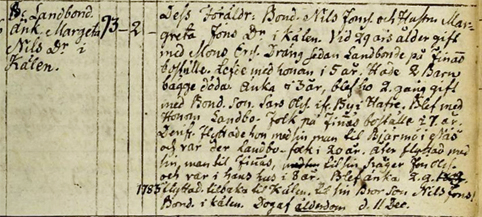 Landbond.
Änk. Margeta
Nils Dr i
Kälen.
93 - 2 -
Dess Föräldr. Bond. Nils Jons. och Hustru Mar-
greta Jons Dr i Kälen. Vid 29 åls ålder gift
med Måns Ers. Dräng sedan Landbonde på Finås
boställe. Lefde med honom i 5 år. Hade 2 Barn
bagge döda. Änka i 3 år, blef 2. gång gift
med Bond. Son Lars Ols. if. By i Hafre. Blef med
Honom Landbo-folk på Finås boställe i 7 år.
med sin man til Bjarmö i Näs
och var der Landbo-folk i 20 år. Åter flyttad med
sin man til Finås, Måger Jon Ols.
och var i hans hus i 8 år. Blef änka 2. g.
1783 flyttad tilbaka til Kälen. til sin Bror Son Nils Jons.
Bond. i Kälen. Dog af ålderdom d. 11 Dec.